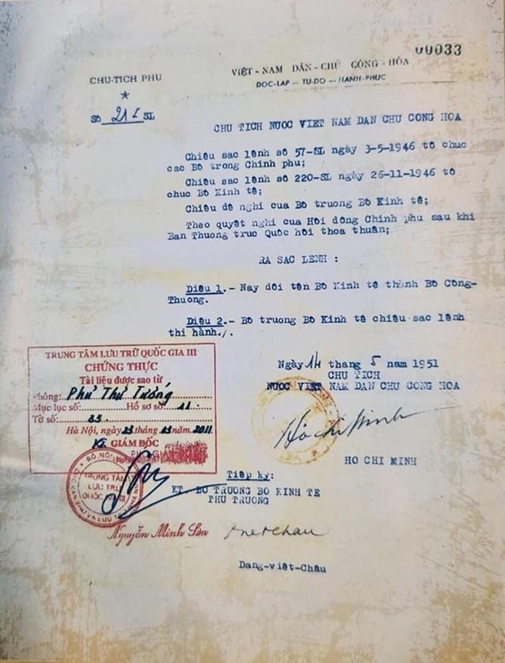 00033
CHU-TICH PHU
VIỆT-NAM DÂN-CHỦ CỘNG-HÒA
ĐỘC-LẬP — TỰ-DO — HẠNH-PHÚC
SỐ SL
CHU TICH NUOC VIET NAM DAN CHU CONG HOA
Chiêu sac lệnh số 57-SL ngày 3-5-1946 tô chuc
cac Bô trong Chinh phu;
Chiêu sac lệnh số 220-SL ngày 26-11-1946 tô
chuc Bô Kinh tê;
Chiêu dê nghi cua Bô truong Bô Kinh tê;
Theo quyêt nghi cua Hôi dông Chinh phu sau khi
Ban Thuong truc Quôc hôi thoa thuân;
RA SAC LENH :
Diêu 1.- Nay dôi tên Bô Kinh tê thành Bô Công-
Thuong.
Diêu 2.- Bô truong Bô Kinh tê chiêu sac lệnh
thi hành./.
Ngày 14 thang 5 nam 1951
CHU TICH
NUOC VIET NAM DAN CHU CONG HOA
TRUNG TÂM LƯU TRỮ QUỐC GIA III
CHỨNG THỰC
Tài liệu được sao từ
Phông: Phủ Thủ Tướng
Mục lục số: Hồ sơ số: 11
Tờ số: 23
Hà Nội, ngày 23 tháng năm 2011
KT GIÁM ĐỐC
Hồ Chí Minh
HO CHI MINH
TRUNG TÂM
LƯU TRỮ
QUỐC GIA III
Tiêp ky:
KT BO TRUONG BO KINH TE
THU TRUONG
Nguyễn Minh Sơn
Dang-viêt-Châu